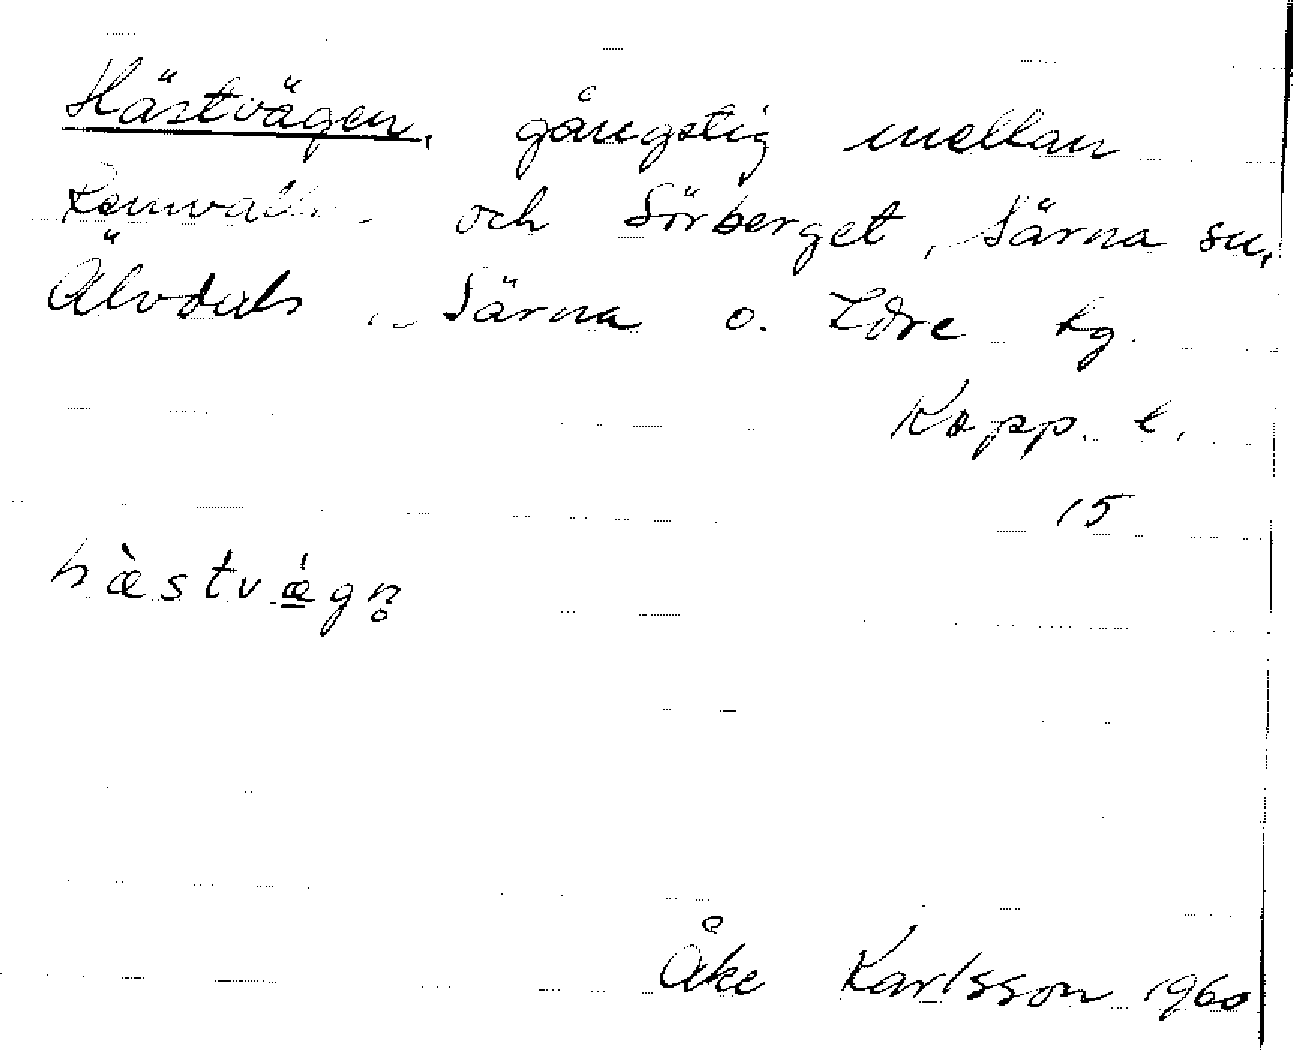 Hästvägen, gångstig mellan
och Sörberget, Särna sn,
Älvdals, Särna o. Idre tg.
Kopp. l.
15
hæ̀stvǽ̲gn̥
Åke Karlsson 1960